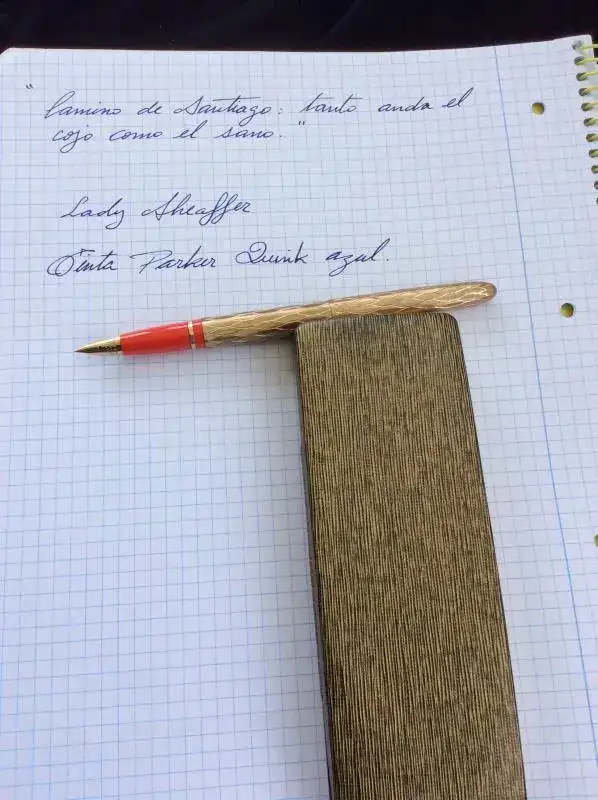 "Camino de Santiago: tanto anda el
cojo como el sano."
Lady Sheaffer
Tinta Parker Quink azul.